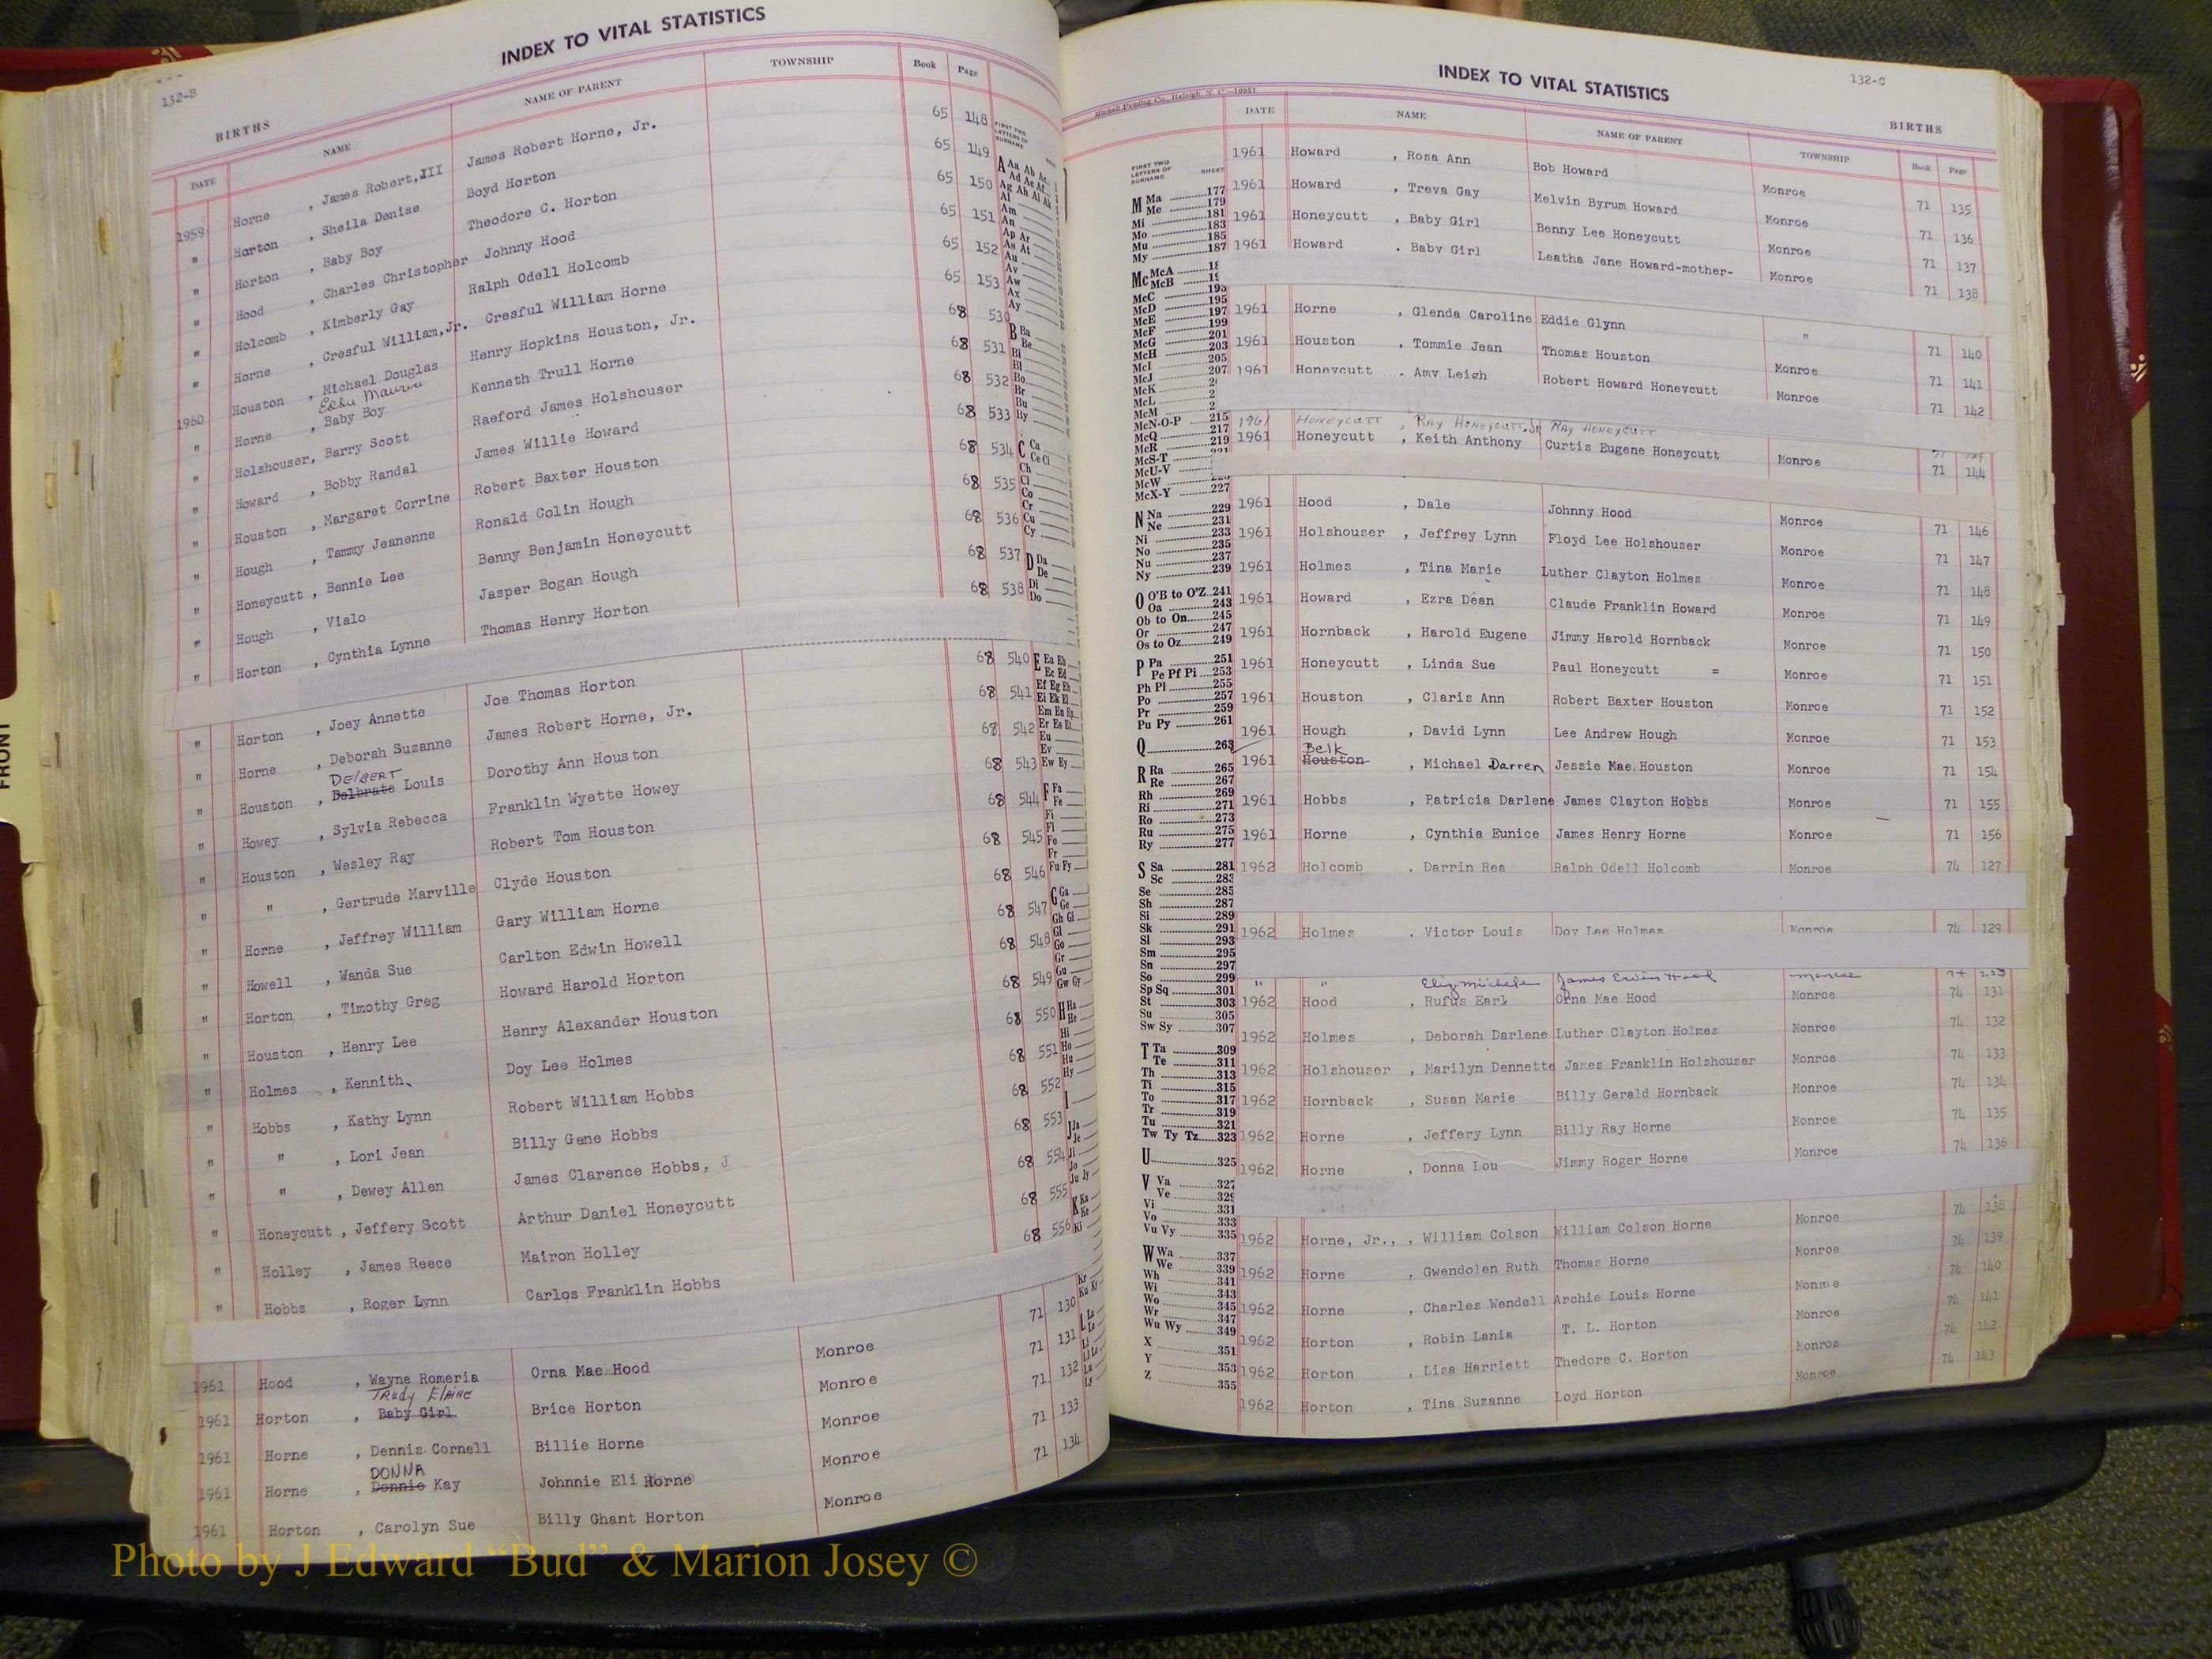 INDEX TO VITAL STATISTICS
132-B
BIRTHS
DATE NAME NAME OF PARENT TOWNSHIP Book Page
1959 Horne , James Robert,III James Robert Horne, Jr. 65 148
" Horton , Sheila Denise Boyd Horton 65 149
" Horton , Baby Boy Theodore C. Horton 65 150
" Hood , Charles Christopher Johnny Hood 65 151
" Holcomb , Kimberly Gay Ralph Odell Holcomb 65 152
" Horne , Cresful William,Jr. Cresful William Horne 65 153
1960 Houston , Michael Douglas Henry Hopkins Houston, Jr. 68 530
" Horne , Baby Boy Kenneth Trull Horne 68 531
" Holshouser, Barry Scott Raeford James Holshouser 68 532
" Howard , Bobby Randal James Willie Howard 68 533
" Houston , Margaret Corrine Robert Baxter Houston 68 534
" Hough , Tammy Jeanenne Ronald Colin Hough 68 535
" Honeycutt , Bennie Lee Benny Benjamin Honeycutt 68 536
" Hough , Vialo Jasper Bogan Hough 68 537
" Horton , Cynthia Lynne Thomas Henry Horton 68 538
" Horton , Joey Annette Joe Thomas Horton 68 540
" Horne , Deborah Suzanne James Robert Horne, Jr. 68 541
DElBERT
" Houston , Delbrate Louis Dorothy Ann Houston 68 542
" Howey , Sylvia Rebecca Franklin Wyette Howey 68 543
" Houston , Wesley Ray Robert Tom Houston 68 544
" " , Gertrude Marville Clyde Houston 68 545
" Horne , Jeffrey William Gary William Horne 68 546
" Howell , Wanda Sue Carlton Edwin Howell 68 547
" Horton , Timothy Greg Howard Harold Horton 68 548
" Houston , Henry Lee Henry Alexander Houston 68 549
" Holmes , Kennith Doy Lee Holmes 68 550
" Hobbs , Kathy Lynn Robert William Hobbs 68 551
" " , Lori Jean Billy Gene Hobbs 68 552
" " , Dewey Allen James Clarence Hobbs, J 68 553
" Honeycutt , Jeffery Scott Arthur Daniel Honeycutt 68 554
" Holley , James Reece Mairon Holley 68 555
" Hobbs , Roger Lynn Carlos Franklin Hobbs 68 556
1961 Hood , Wayne Romeria Orna Mae Hood Monroe 71 130
TRudy ElAiNe
1961 Horton , Baby Girl Brice Horton Monroe 71 131
1961 Horne , Dennis Cornell Billie Horne Monroe 71 132
DONNA
1961 Horne , Donnie Kay Johnnie Eli Horne Monroe 71 133
1961 Horton , Carolyn Sue Billy Ghant Horton Monroe 71 134
INDEX TO VITAL STATISTICS
132-C
Mitchell Printing Co., Raleigh, N. C.—10951
BIRTHS
DATE NAME NAME OF PARENT TOWNSHIP Book Page
1961 Howard , Rosa Ann Bob Howard Monroe 71 135
1961 Howard , Treva Gay Melvin Byrum Howard Monroe 71 136
1961 Honeycutt , Baby Girl Benny Lee Honeycutt Monroe 71 137
1961 Howard , Baby Girl Leatha Jane Howard-mother- Monroe 71 138
1961 Horne , Glenda Caroline Eddie Glynn " 71 140
1961 Houston , Tommie Jean Thomas Houston Monroe 71 141
1961 Honeycutt , Amy Leigh Robert Howard Honeycutt Monroe 71 142
1961 HONEYCUTT , RAY HONEYCUTT, JR RAY HONEYCUTT
1961 Honeycutt , Keith Anthony Curtis Eugene Honeycutt Monroe 71 144
1961 Hood , Dale Johnny Hood Monroe 71 146
1961 Holshouser , Jeffrey Lynn Floyd Lee Holshouser Monroe 71 147
1961 Holmes , Tina Marie Luther Clayton Holmes Monroe 71 148
1961 Howard , Ezra Dean Claude Franklin Howard Monroe 71 149
1961 Hornback , Harold Eugene Jimmy Harold Hornback Monroe 71 150
1961 Honeycutt , Linda Sue Paul Honeycutt = Monroe 71 151
1961 Houston , Claris Ann Robert Baxter Houston Monroe 71 152
1961 Hough , David Lynn Lee Andrew Hough Monroe 71 153
Belk
1961 Houston , Michael Darren Jessie Mae Houston Monroe 71 154
1961 Hobbs , Patricia Darlene James Clayton Hobbs Monroe 71 155
1961 Horne , Cynthia Eunice James Henry Horne Monroe 71 156
1962 Holcomb , Darrin Rea Ralph Odell Holcomb Monroe 74 127
1962 Holmes , Victor Louis Doy Lee Holmes Monroe 74 129
" " James Erwin Hood Monroe
1962 Hood , Rufus Earl Orna Mae Hood Monroe 74 131
1962 Holmes , Deborah Darlene Luther Clayton Holmes Monroe 74 132
1962 Holshouser , Marilyn Dennette James Franklin Holshouser Monroe 74 133
1962 Hornback , Susan Marie Billy Gerald Hornback Monroe 74 134
1962 Horne , Jeffery Lynn Billy Ray Horne Monroe 74 135
1962 Horne , Donna Lou Jimmy Roger Horne Monroe 74 136
1962 Horne, Jr., , William Colson William Colson Horne Monroe 74 138
1962 Horne , Gwendolen Ruth Thomas Horne Monroe 74 139
1962 Horne , Charles Wendell Archie Louis Horne Monroe 74 140
1962 Horton , Robin Lania T. L. Horton Monroe 74 141
1962 Horton , Lisa Harriett Thedore C. Horton Monroe 74 142
1962 Horton , Tina Suzanne Loyd Horton Monroe 74 143
FIRST TWO LETTERS OF SURNAME SHEET
M Ma 177
Me 179
Mi 181
Mo 183
Mu 185
My 187
Mc McA
McB
McC 193
McD 195
McE 197
McF 199
McG 201
McH 203
McI 205
McJ 207
McK
McL
McM
McN-O-P 215
McQ 217
McR 219
McS-T
McU-V
McW
McX-Y 227
N Na 229
Ne 231
Ni 233
No 235
Nu 237
Ny 239
O O'B to O'Z 241
Oa 243
Ob to On 245
Or 247
Os to Oz 249
P Pa 251
Pe Pf Pi 253
Ph Pl 255
Po 257
Pr 259
Pu Py 261
Q 263
R Ra 265
Re 267
Rh 269
Ri 271
Ro 273
Ru 275
Ry 277
S Sa 281
Sc 283
Se 285
Sh 287
Si 289
Sk 291
Sl 293
Sm 295
Sn 297
So 299
Sp Sq 301
St 303
Su 305
Sw Sy 307
T Ta 309
Te 311
Th 313
Ti 315
To 317
Tr 319
Tu 321
Tw Ty Tz 323
U 325
V Va 327
Ve 329
Vi 331
Vo 333
Vu Vy 335
W Wa 337
We 339
Wh 341
Wi 343
Wo 345
Wr 347
Wu Wy 349
X 351
Y 353
Z 355
FRONT
Photo by J Edward “Bud” & Marion Josey ©